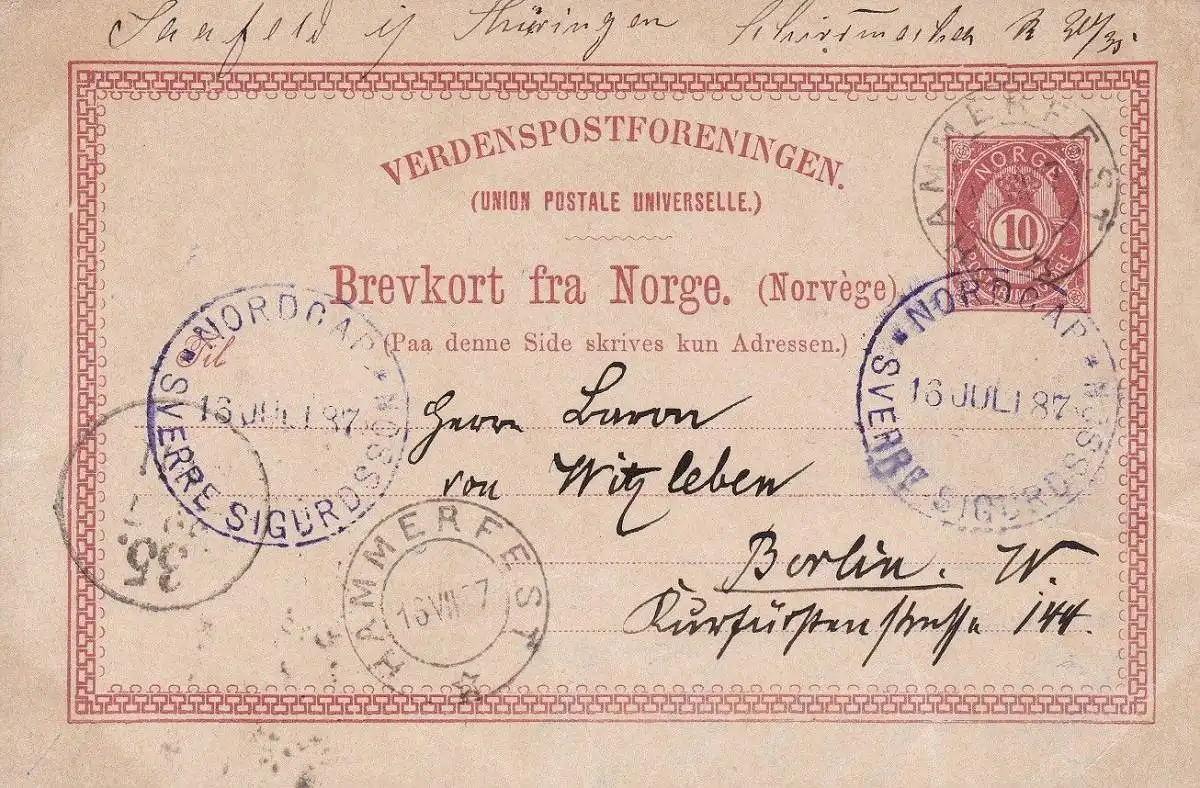 Saalfeld i/ Thüringen
HAMMERFEST
VERDENSPOSTFORENINGEN.
(UNION POSTALE UNIVERSELLE.)
NORGE
10
POSTFRIM ØRE
Brevkort fra Norge. (Norvège)
(Paa denne Side skrives kun Adressen.)
Til
NORDCAP
16 JULI 87
SVERRE SIGURDSSØN
NORDCAP
16 JULI 87
SVERRE SIGURDSSØN
Herrn Baron
von Witzleben
Berlin. W.
Kurfürstenstrasse 144.
35
HAMMERFEST
16 VII 87